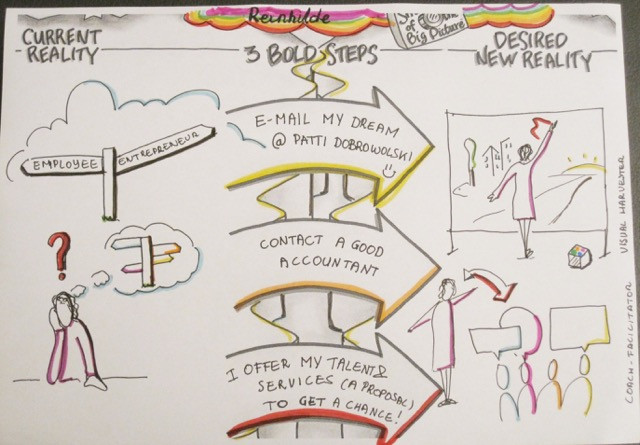 Reinhilde
of
Big Picture
CURRENT
REALITY
3 BOLD STEPS
DESIRED
NEW REALITY
EMPLOYEE
ENTREPRENEUR
?
E-MAIL MY DREAM
@ PATTI DOBROWOLSKI
CONTACT A GOOD
ACCOUNTANT
I OFFER MY TALENT &
SERVICES (A PROPOSAL)
TO GET A CHANCE!
VISUAL HARVESTER
COACH-FACILITATOR